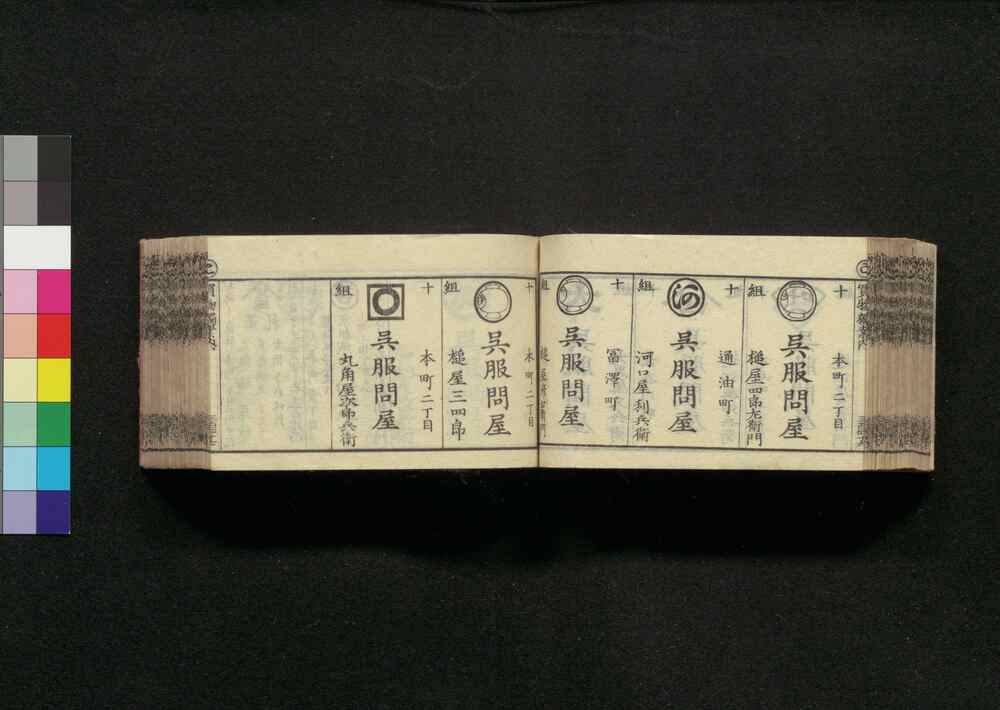 十 組
本町二丁目
呉服問屋
槌屋四郎左衛門
十 組
通油町
呉服問屋
河口屋利兵衛
十 組
冨澤町
呉服問屋
十 組
本町二丁目
呉服問屋
槌屋三四郎
十 組
本町二丁目
呉服問屋
丸角屋次郎兵衛